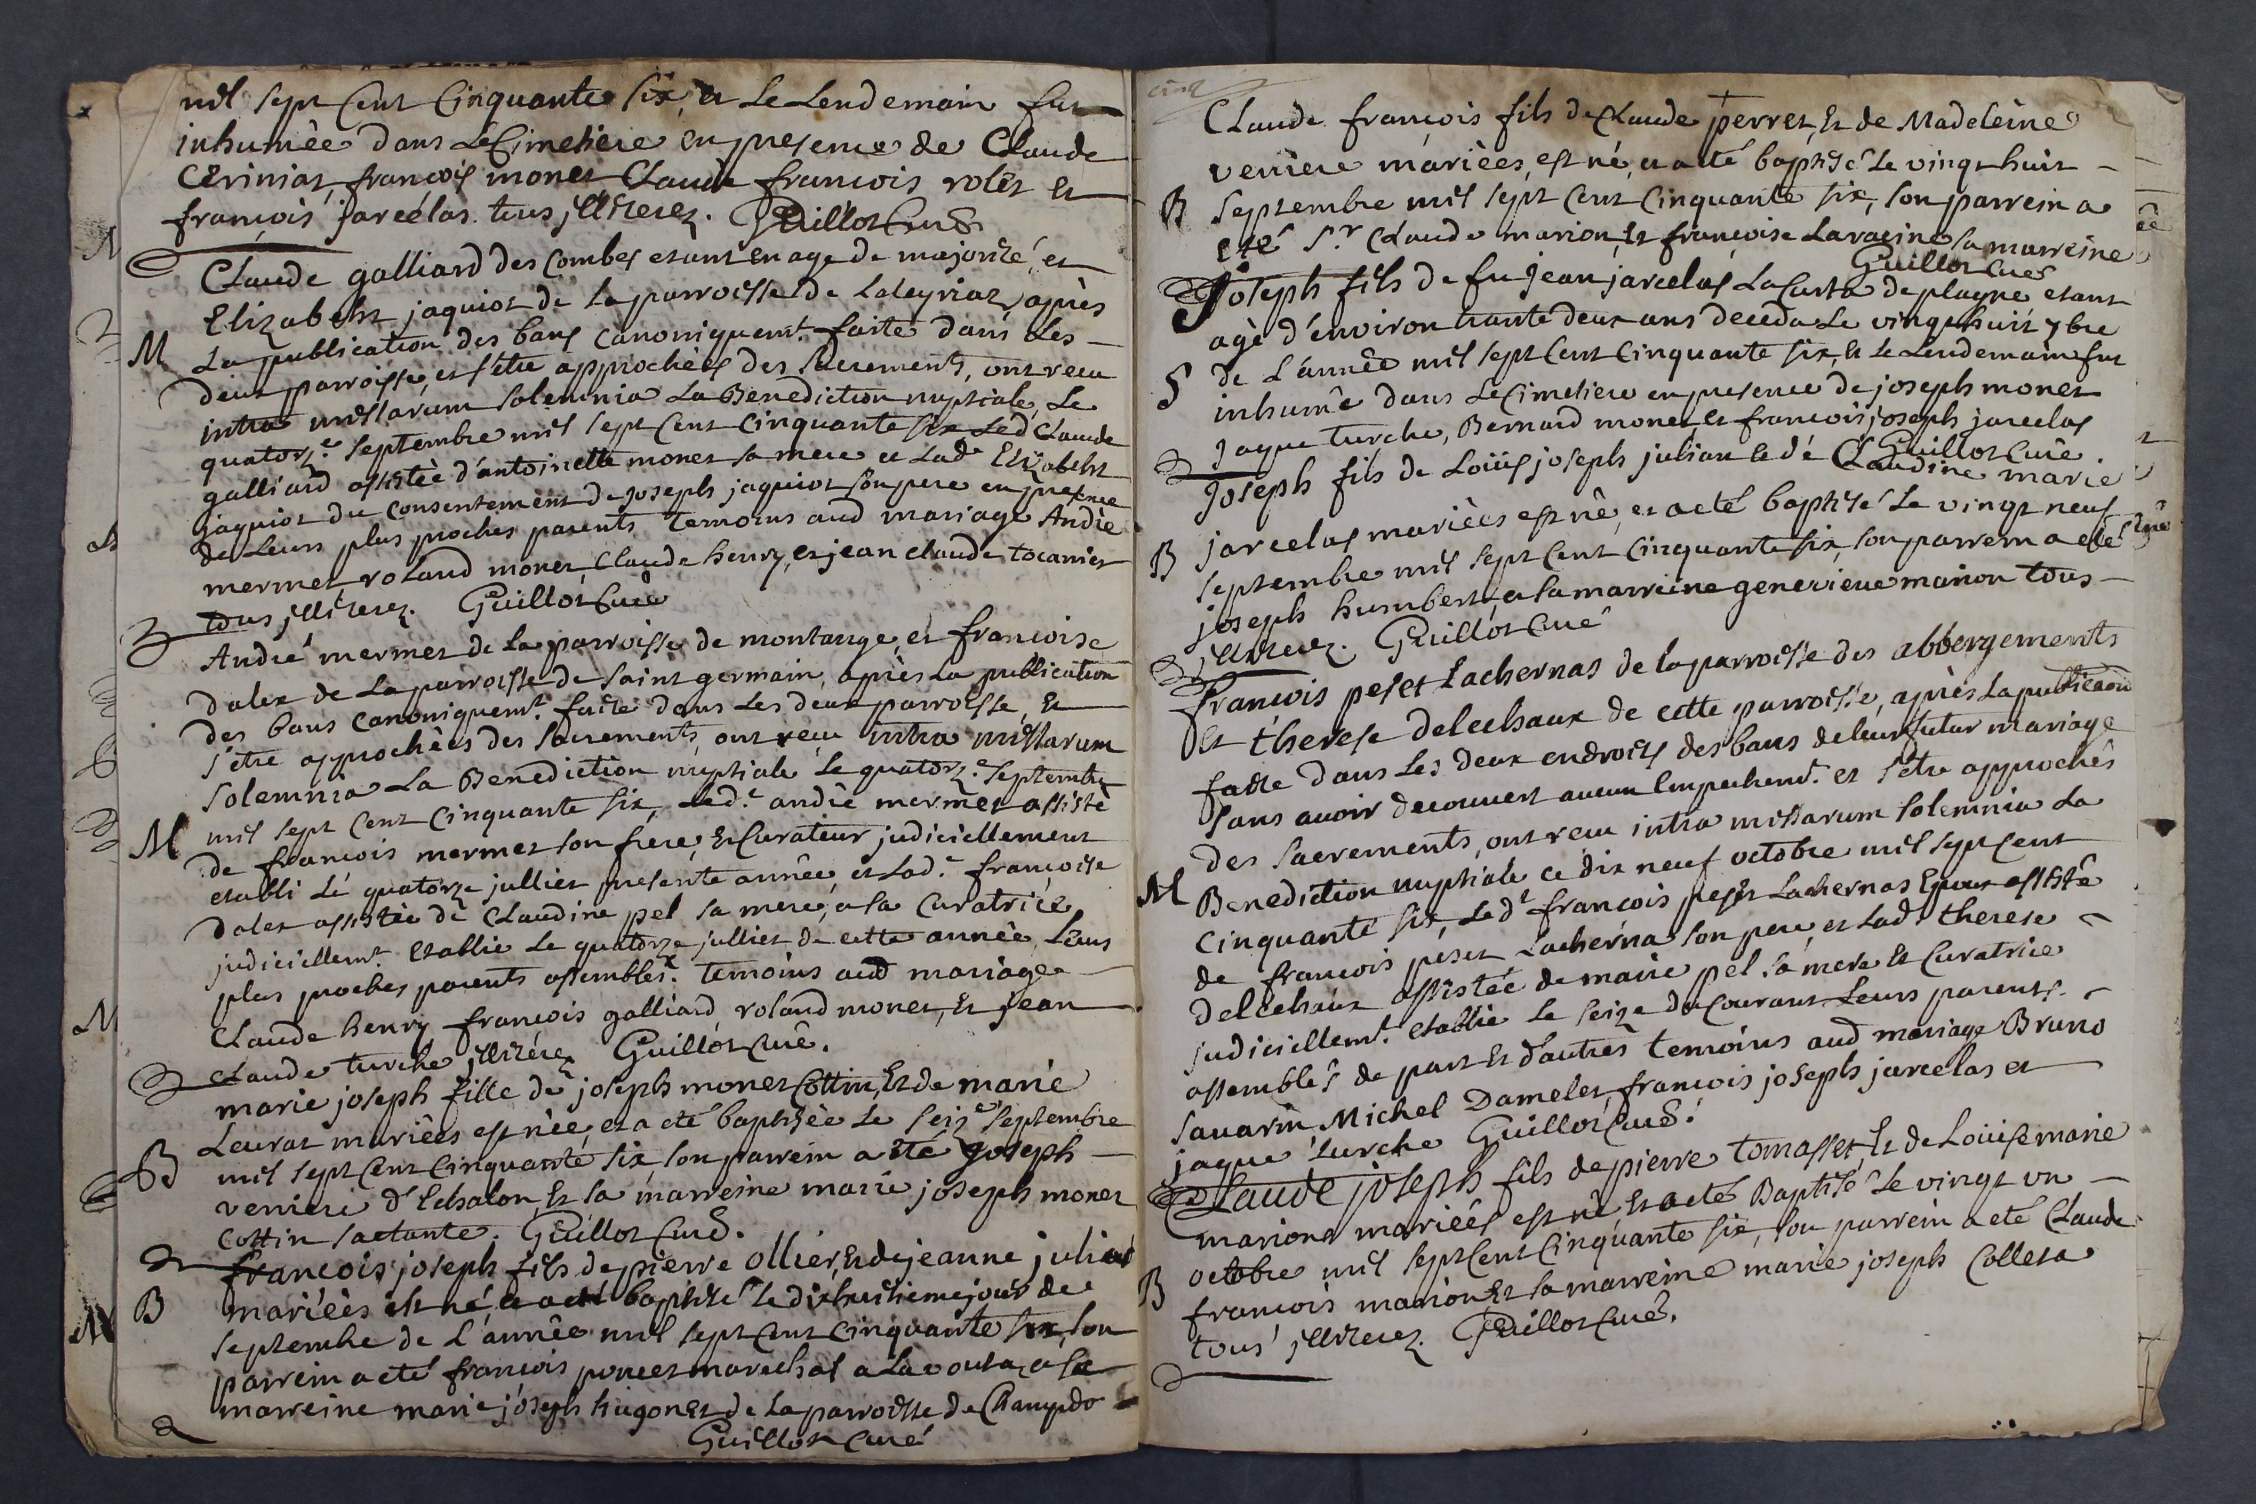 mil sept Cent Cinquante six, et Le Lendemain fut
inhumée dans Le Cimetiere en presence de Claude
Cerinias, françois monet Claude françois rolet et
françois jarcelas. tous jlliterez. Guillot Curé
Claude galliard des Combes etant en age de majorité, et
Elizabeht jaquiot de la parroisse de Laleyriaz, après
M La publication des bans canoniquemt. faite dans Les
deux parroisse, et s'être approchées des Sacrements, ont recu
intra missarum solemnia La Benediction nuptiale, Le
quatorze. septembre mil sept Cent Cinquante six Led Claude
galliard assistée d'antoinette monet sa mere et Lade Elizabeht
jaquiot du consentement de joseph jaquiot son pere en presence
de Leurs plus proches parents, temoins aud mariage André
mermet roland monet, Claude henry, et jean claude tocanier
tous jlliterez. Guillot Curé
André mermet de La parroisse de montange, et francoise
dalex de La parroisse de saint germain, après La publication
des bans canoniquemt. faite dans Les deux parroisse, Et
s'être approchées des sacrements, ont recu intra missarum
solemnia La Benediction nuptiale Le quatorze. septembre
M mil sept Cent Cinquante six, Led.t andré mermet assisté
de françois mermet son frere, Et Curateur judiciellement
etabli Le quatorze jullier presente année et Lad.e francoise
dalex assistée de Claudine pel sa mere, et sa Curatrice
judiciellemt. Etablie Le quatorze jullier de cette année, Leurs
plus proches parents assemblés. temoins aud mariage
Claude henry françois galliard, roland monet, Et jean
claude turche jlliterez Guillot Curé.
marie joseph fille de joseph monet Cottin, Et de marie
B Leurat mariées est née, et a eté baptisée Le seize septembre
mil sept Cent Cinquante six son parrein a été joseph
verriere d'Echalon, Et sa marreine marie joseph monet
Cottin sa tante. Guillot Curé.
françois joseph fils de pierre ollier, Et de jeanne julian
B mariées est né, et a eté baptisé Le dixhuitieme jour de
septembre de L'année mil sept Cent Cinquante six, son
parrein a eté françois poncet marechal a La voute, et sa
marreine marie joseph hugonet de La parroisse de Champdo
Guillot Curé
Claude françois fils de Claude perret, Et de Madeleine
verriere mariées, est né, et a eté baptisé Le vingt huit
B septembre mil sept Cent Cinquante six, son parrein a
eté S.r Claude marion, Et françoise Laracine sa marreine
Guillot Curé
Joseph fils de fu jean jarcelas La Curta de plagne etant
agé d'environ trante deux ans deceda Le vingt huit 7bre
S de L'année mil sept Cent Cinquante six, Et Le Lendemain fut
inhumé dans Le Cimetiere en presence de joseph monet
jaque turche, Bernard monet, et francois joseph jarcelas
Guillot Curé.
Joseph fils de Loüis joseph julian et de Claudine marie
jarcelas mariées est né, et a eté baptisé Le vingt neuf
B septembre mil sept Cent Cinquante six, son parrein a eté
joseph humbert, et sa marreine genevieve marion tous
jlliterez. Guillot Curé
François peset Lachernas de la parroisse des abbergements
Et therese delechaux de cette parroisse, après La publication
faitte dans Les deux endroits des bans de leur futur mariage
sans avoir decouvert aucun Empechemt. et s'être approchés
des sacrements, ont recu intra missarum solemnia La
M Benediction nuptiale ce dix neuf octobre mil sept cent
Cinquante six, Led.t françois peset Lachernas Epoux assisté
de francois peset Lacherna son pere, et Lad.e therese
delechaux assistée de marie pel sa mere Et Curatrice
judiciellemt. etablie Le seize du Courant, Leurs parents
assemblés de part Et d'autres temoins aud mariage Bruno
savarin Michel Damelet, francois joseph jarcelas et
jaque turche Guillot Curé.
Claude joseph fils de pierre tomasset, Et de Loüise marie
marion mariées est né Et a eté Baptisé Le vingt un
B octobre mil sept Cent Cinquante six, son parrein a eté Claude
françois marion Et sa marreine marie joseph Colleta
tous jlliterez. Guillot Curé.